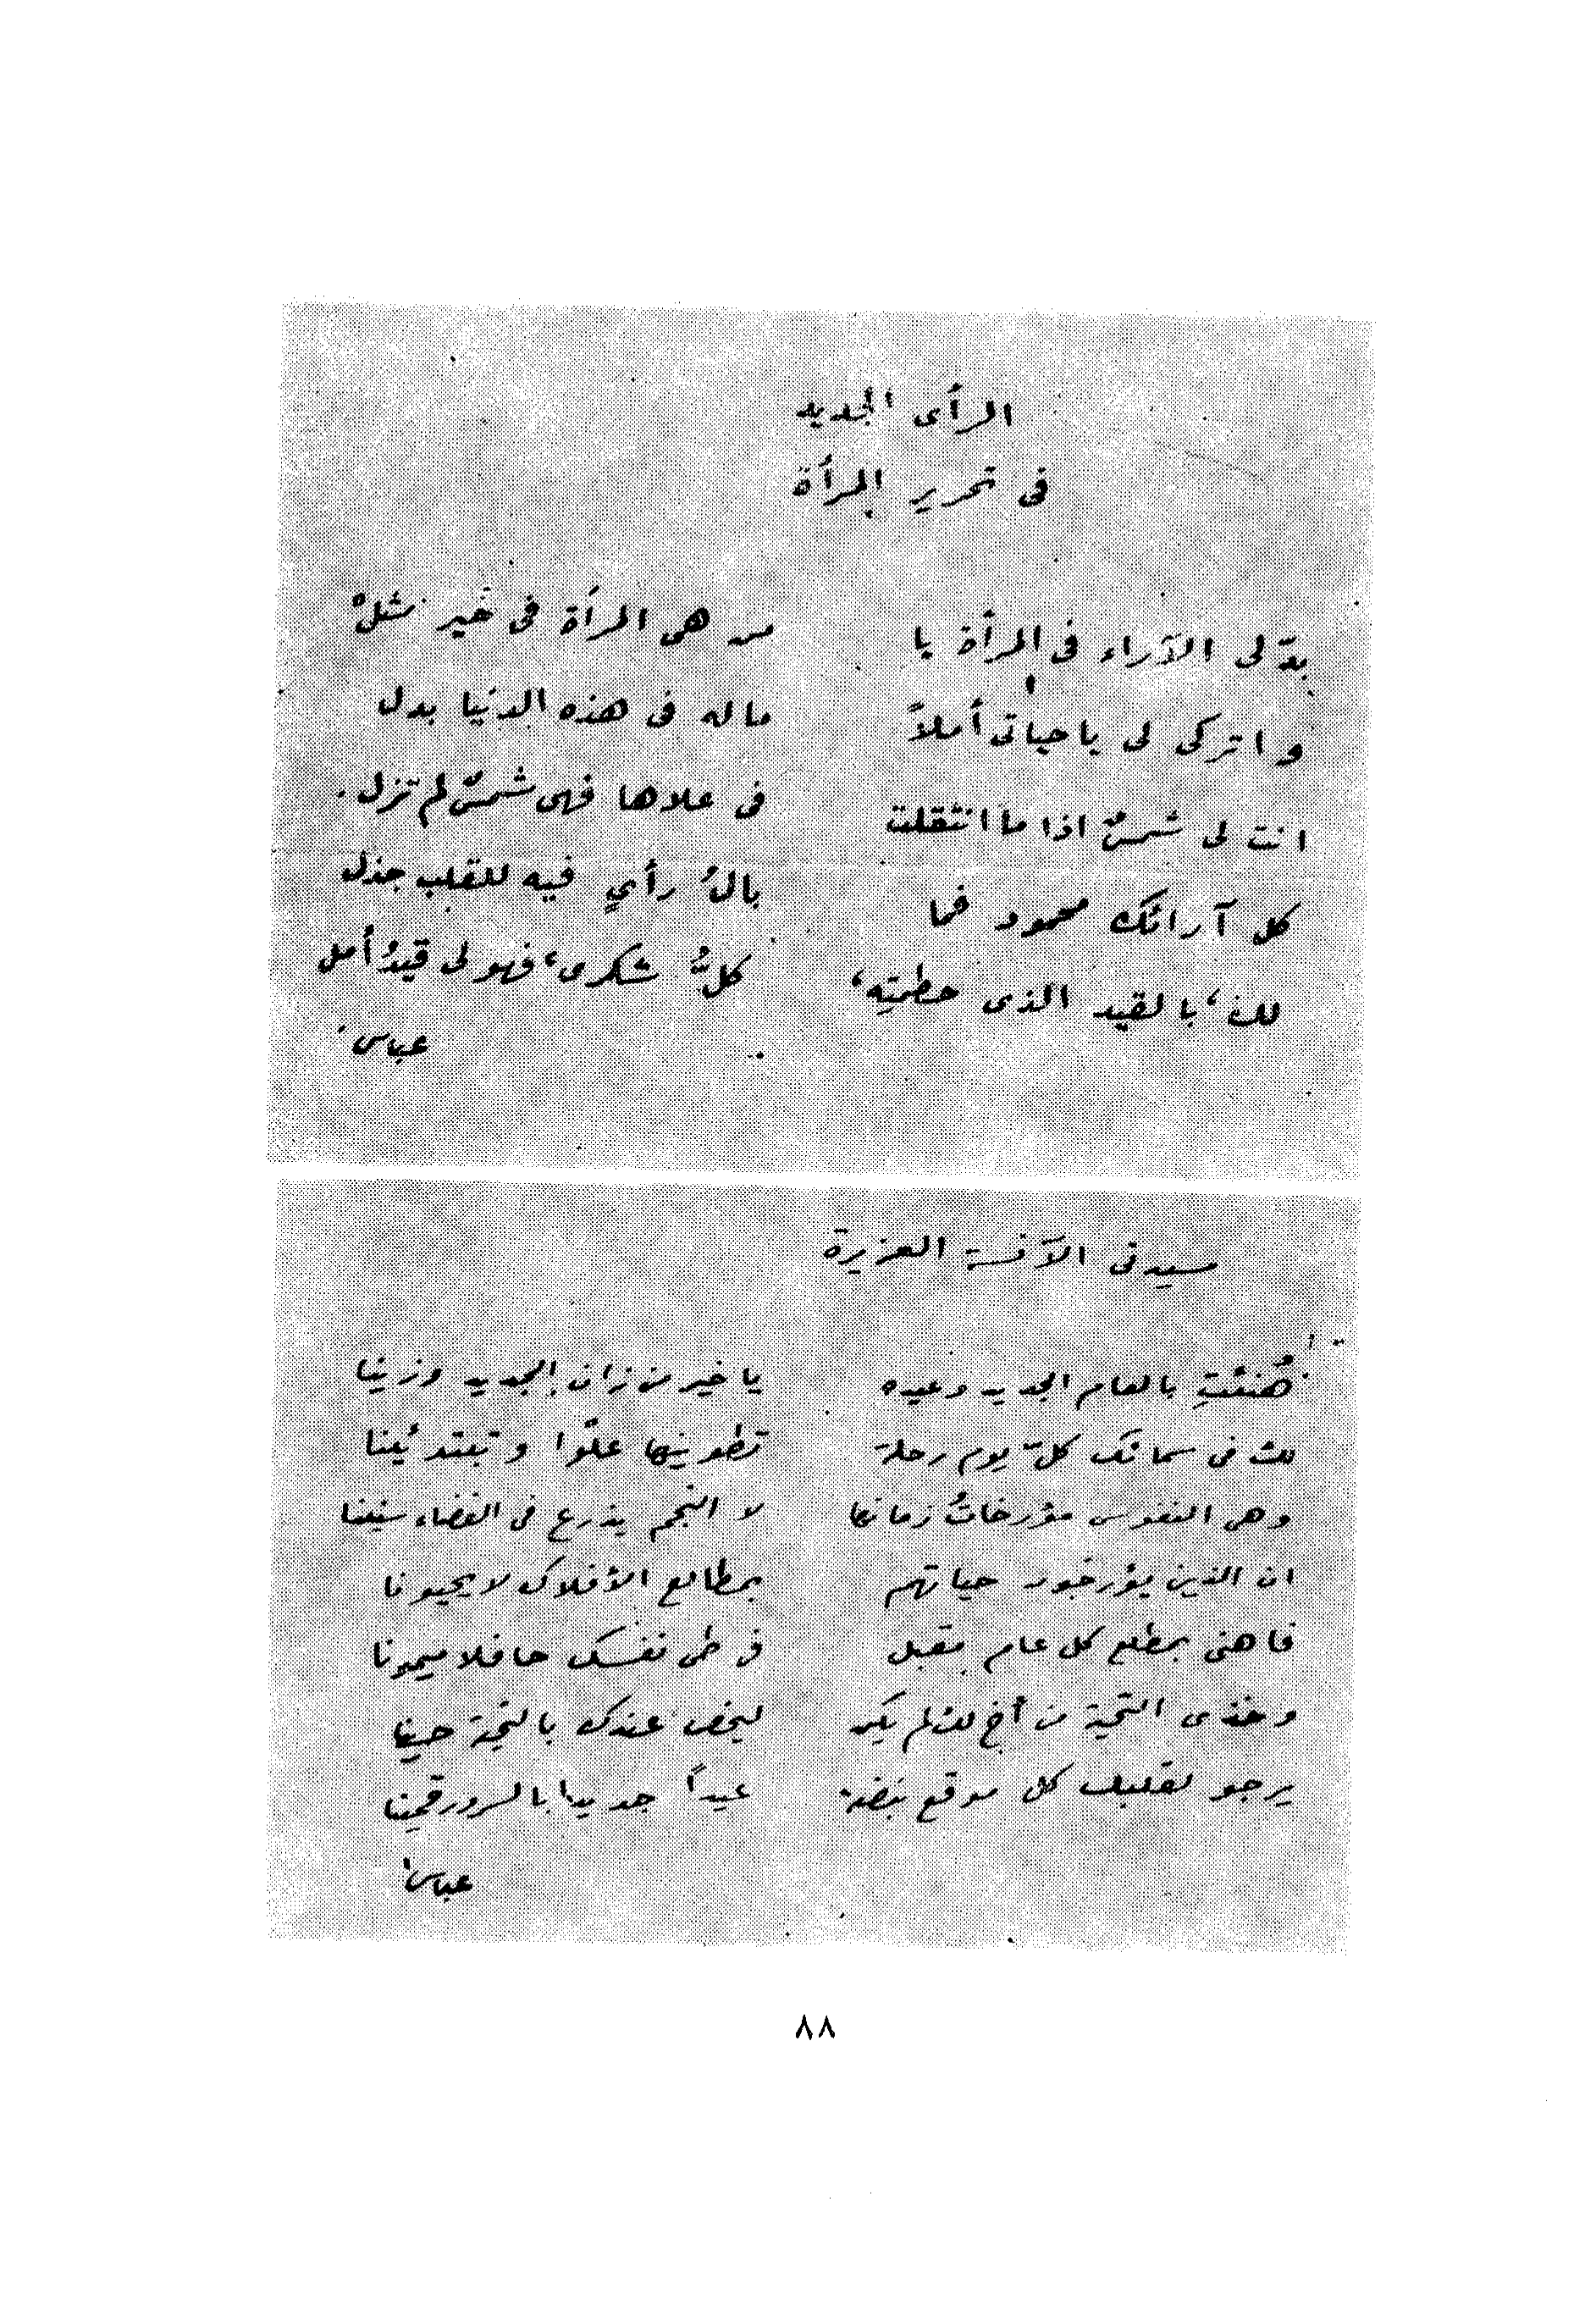 الرأى الجديد
فى تحرير المرأة
بدّلى الآراء فى المرأة يا من هى المرأة فى خير مثلْ
واتركى لى يا حياتى أملاً ماله فى هذه الدنيا بدل
انت لى شمسٌ اذا ما انتقلت فى علاها فهى شمسٌ لم تزل.
كل آرائك محمود فما بالُ رأيٍ فيه للقلب جذل
لكِ، بالقيد الذى حطمتِه، كلُّ شكرى، فهو لى قيدُ أمل
عباس
سيدتى الآنسة العزيزة
هُنئتِ بالعام الجديد وعيده يا خير من زان الجديد وزينا
لك فى سمائك كلّ يوم رحلة تطوينها علوّا وتبتدئينا
وهى النفوس مؤرخاتُ زمانها لا النجم يذرع فى الفضاء سنينا
ان الذين يؤرخون حياتهم بمطالع الأفلاك لا يحيونا
فاهنى بمطلع كل عام مقبل فى طى نفسك حافلا ميمونا
وخذى التحية من أخ لك لم يكن ليخص عندك بالتحية حينا
يرجو لقلبك كل موقع نبضة عيداً جديدا بالسرور قمينا
عباس
٨٨